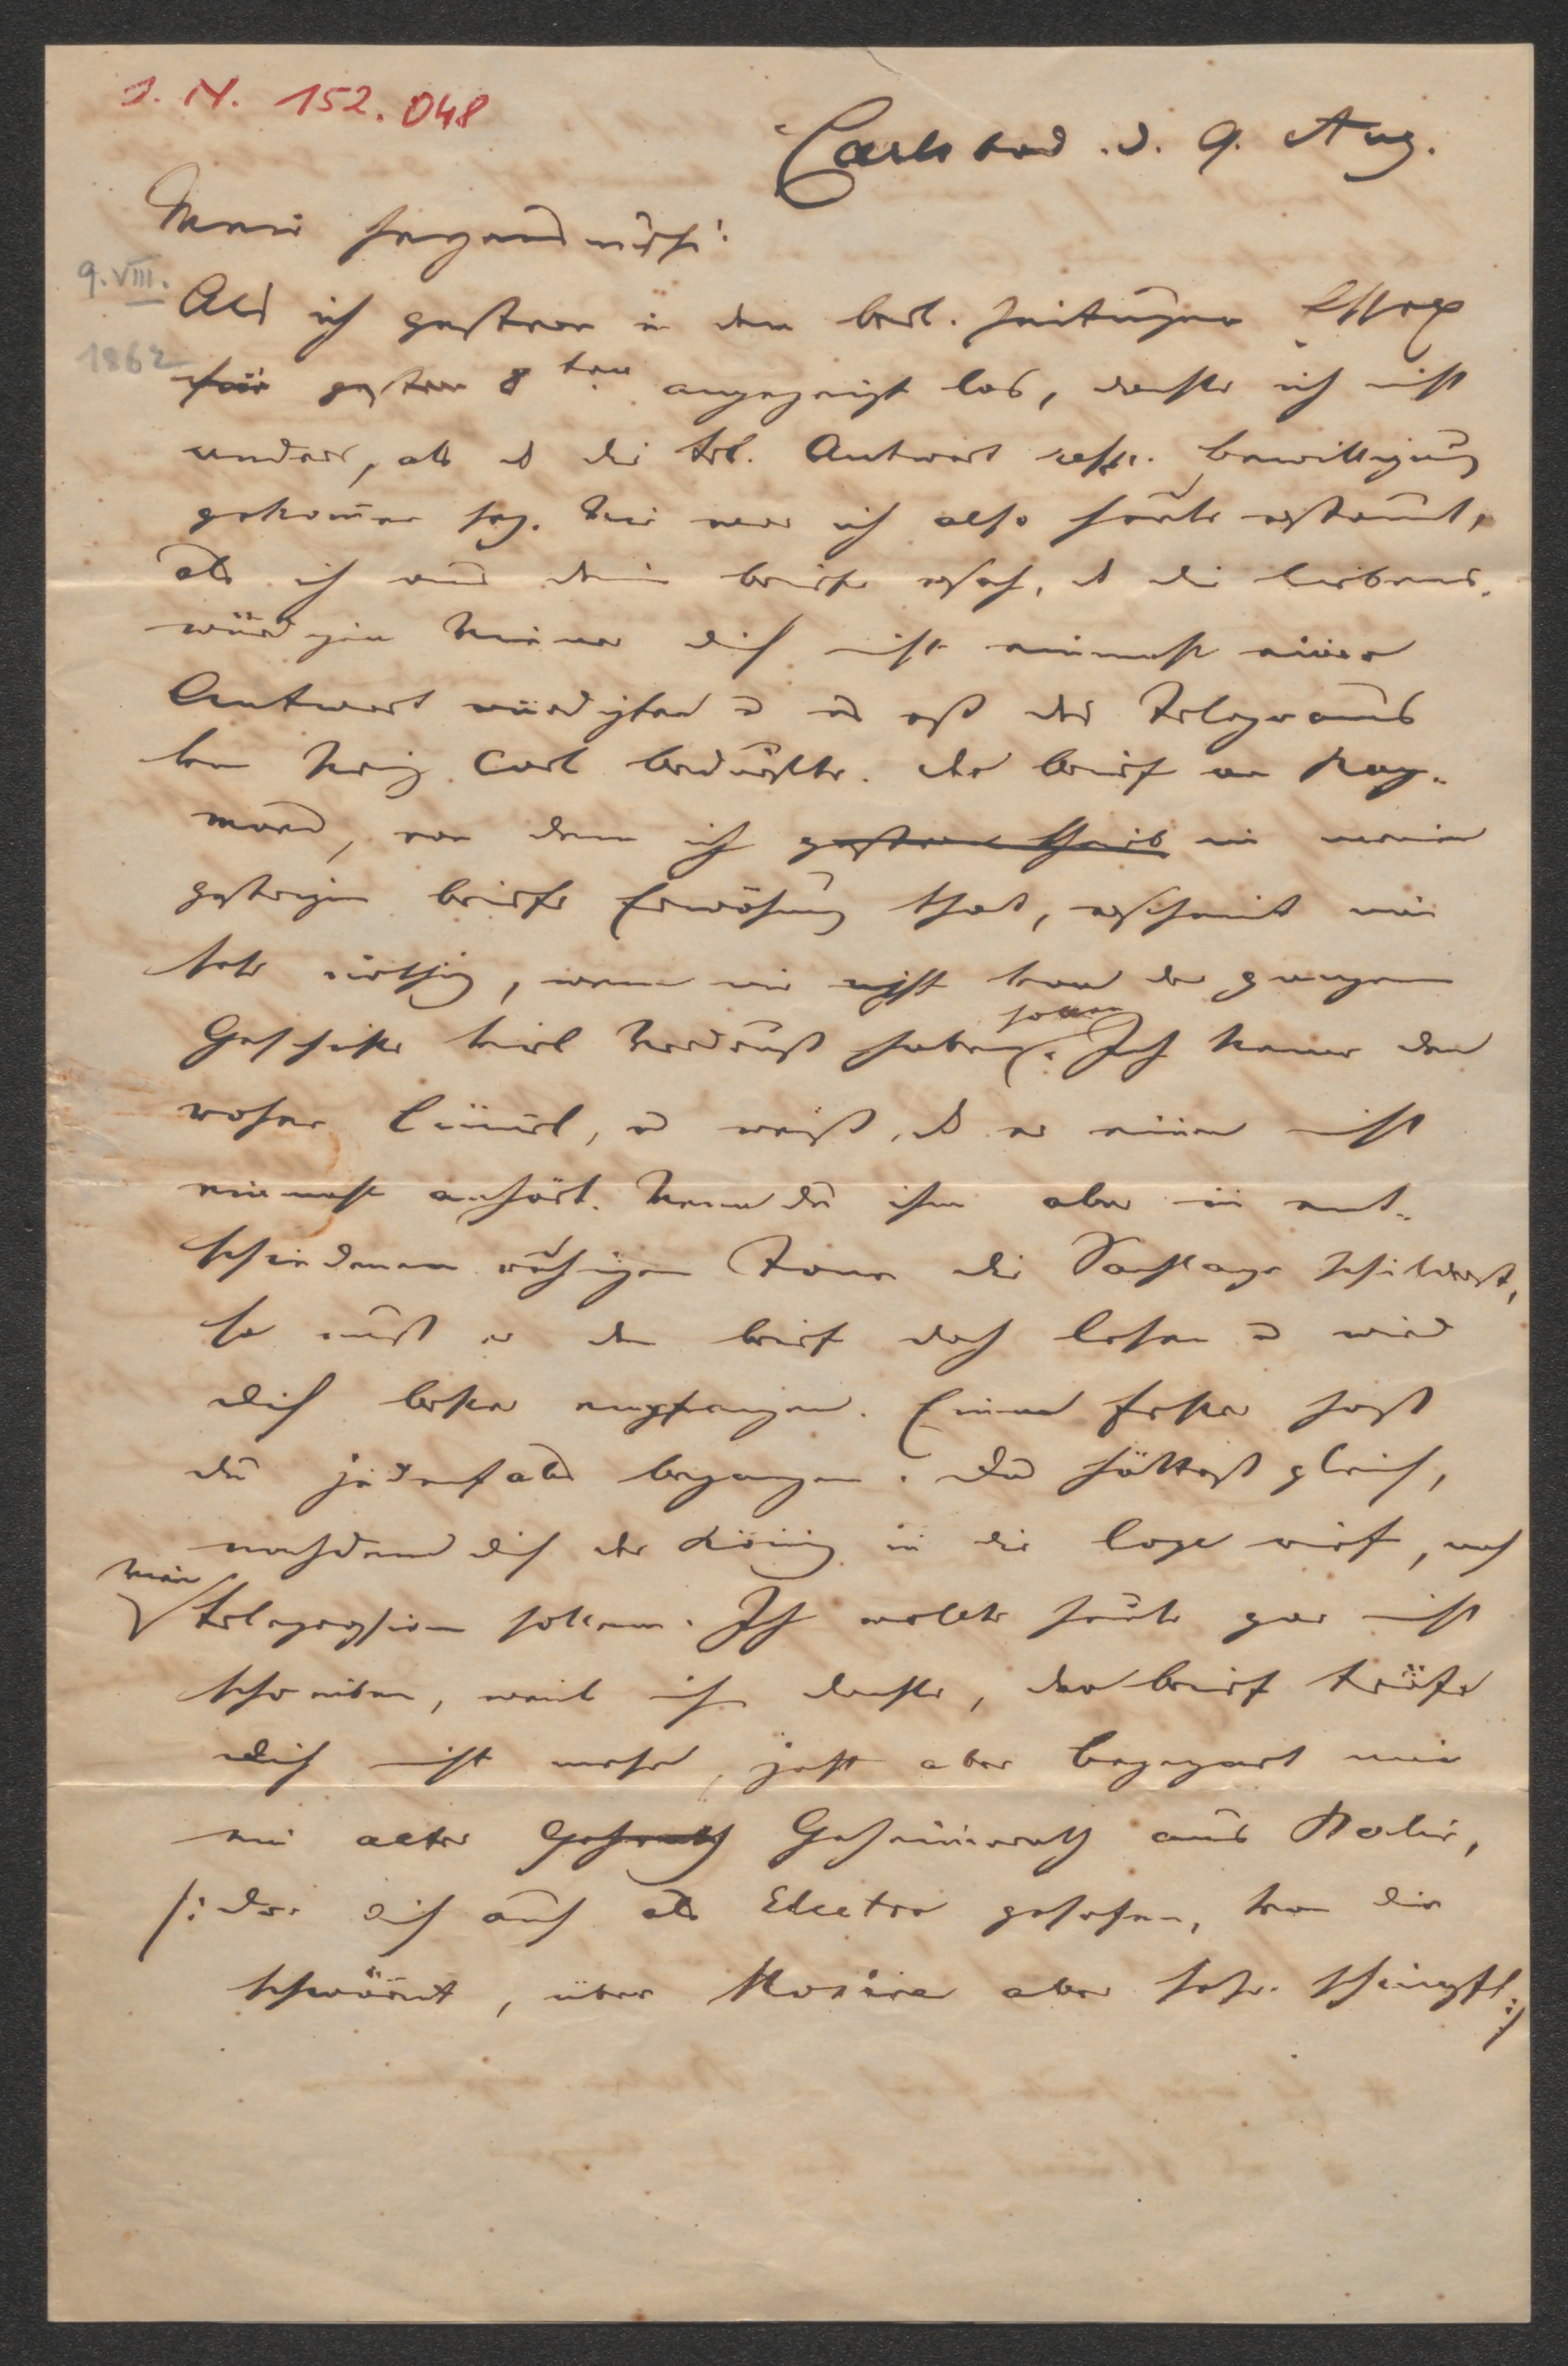 J. N. 152.048
Carlsbad. d. 9. Aug.
Mein
9. VIII.
1862
Als ich gestern in den berl. Zeitungen Essex
für gestern 8ten angezeigt las, dachte ich nicht
anders, als d die tel. Antwort resp. Bewilligung
gekommen sey. Wie war ich also heute erstaunt,
als ich aus dein Briefe ersah, d die liebens-
würdigen Wiener dich nicht einmahl einer
Antwort würdigten u es erst des Telegramms
von Carl bedurfte. Der Brief an Ray-
mond, von dem ich gestern schrieb in meinem
gestrigen Briefe Erwähnung that, erscheint mir
sehr nöthig, wenn wir nicht von der ganzen
Geschichte viel Verdruß haben sollen. Ich kenne den
rohen Lümel, u weiß, d er einen nicht
einmahl anhört. Wenn du ihm aber in ent-
schiedenem ruhigen Tone die Sachlage schilderst,
so muß er den Brief doch lesen u wird
dich besser empfangen. Einen Fehler hast
du jedenfals begangen. Du hättest gleich,
nachdem dich der König in die Loge rief, nach
Wien telegrafiren sollen. Ich wollte heute gar nicht
schreiben, weil ich dachte, der Brief träfe
dich nicht mehr, jetzt aber begegnet mir
ein alter Gehrath Geheimerath aus Berlin,
/: der dich auch als Electra gesehen, von dir
schwärmt, über aber sehr schimpft :/